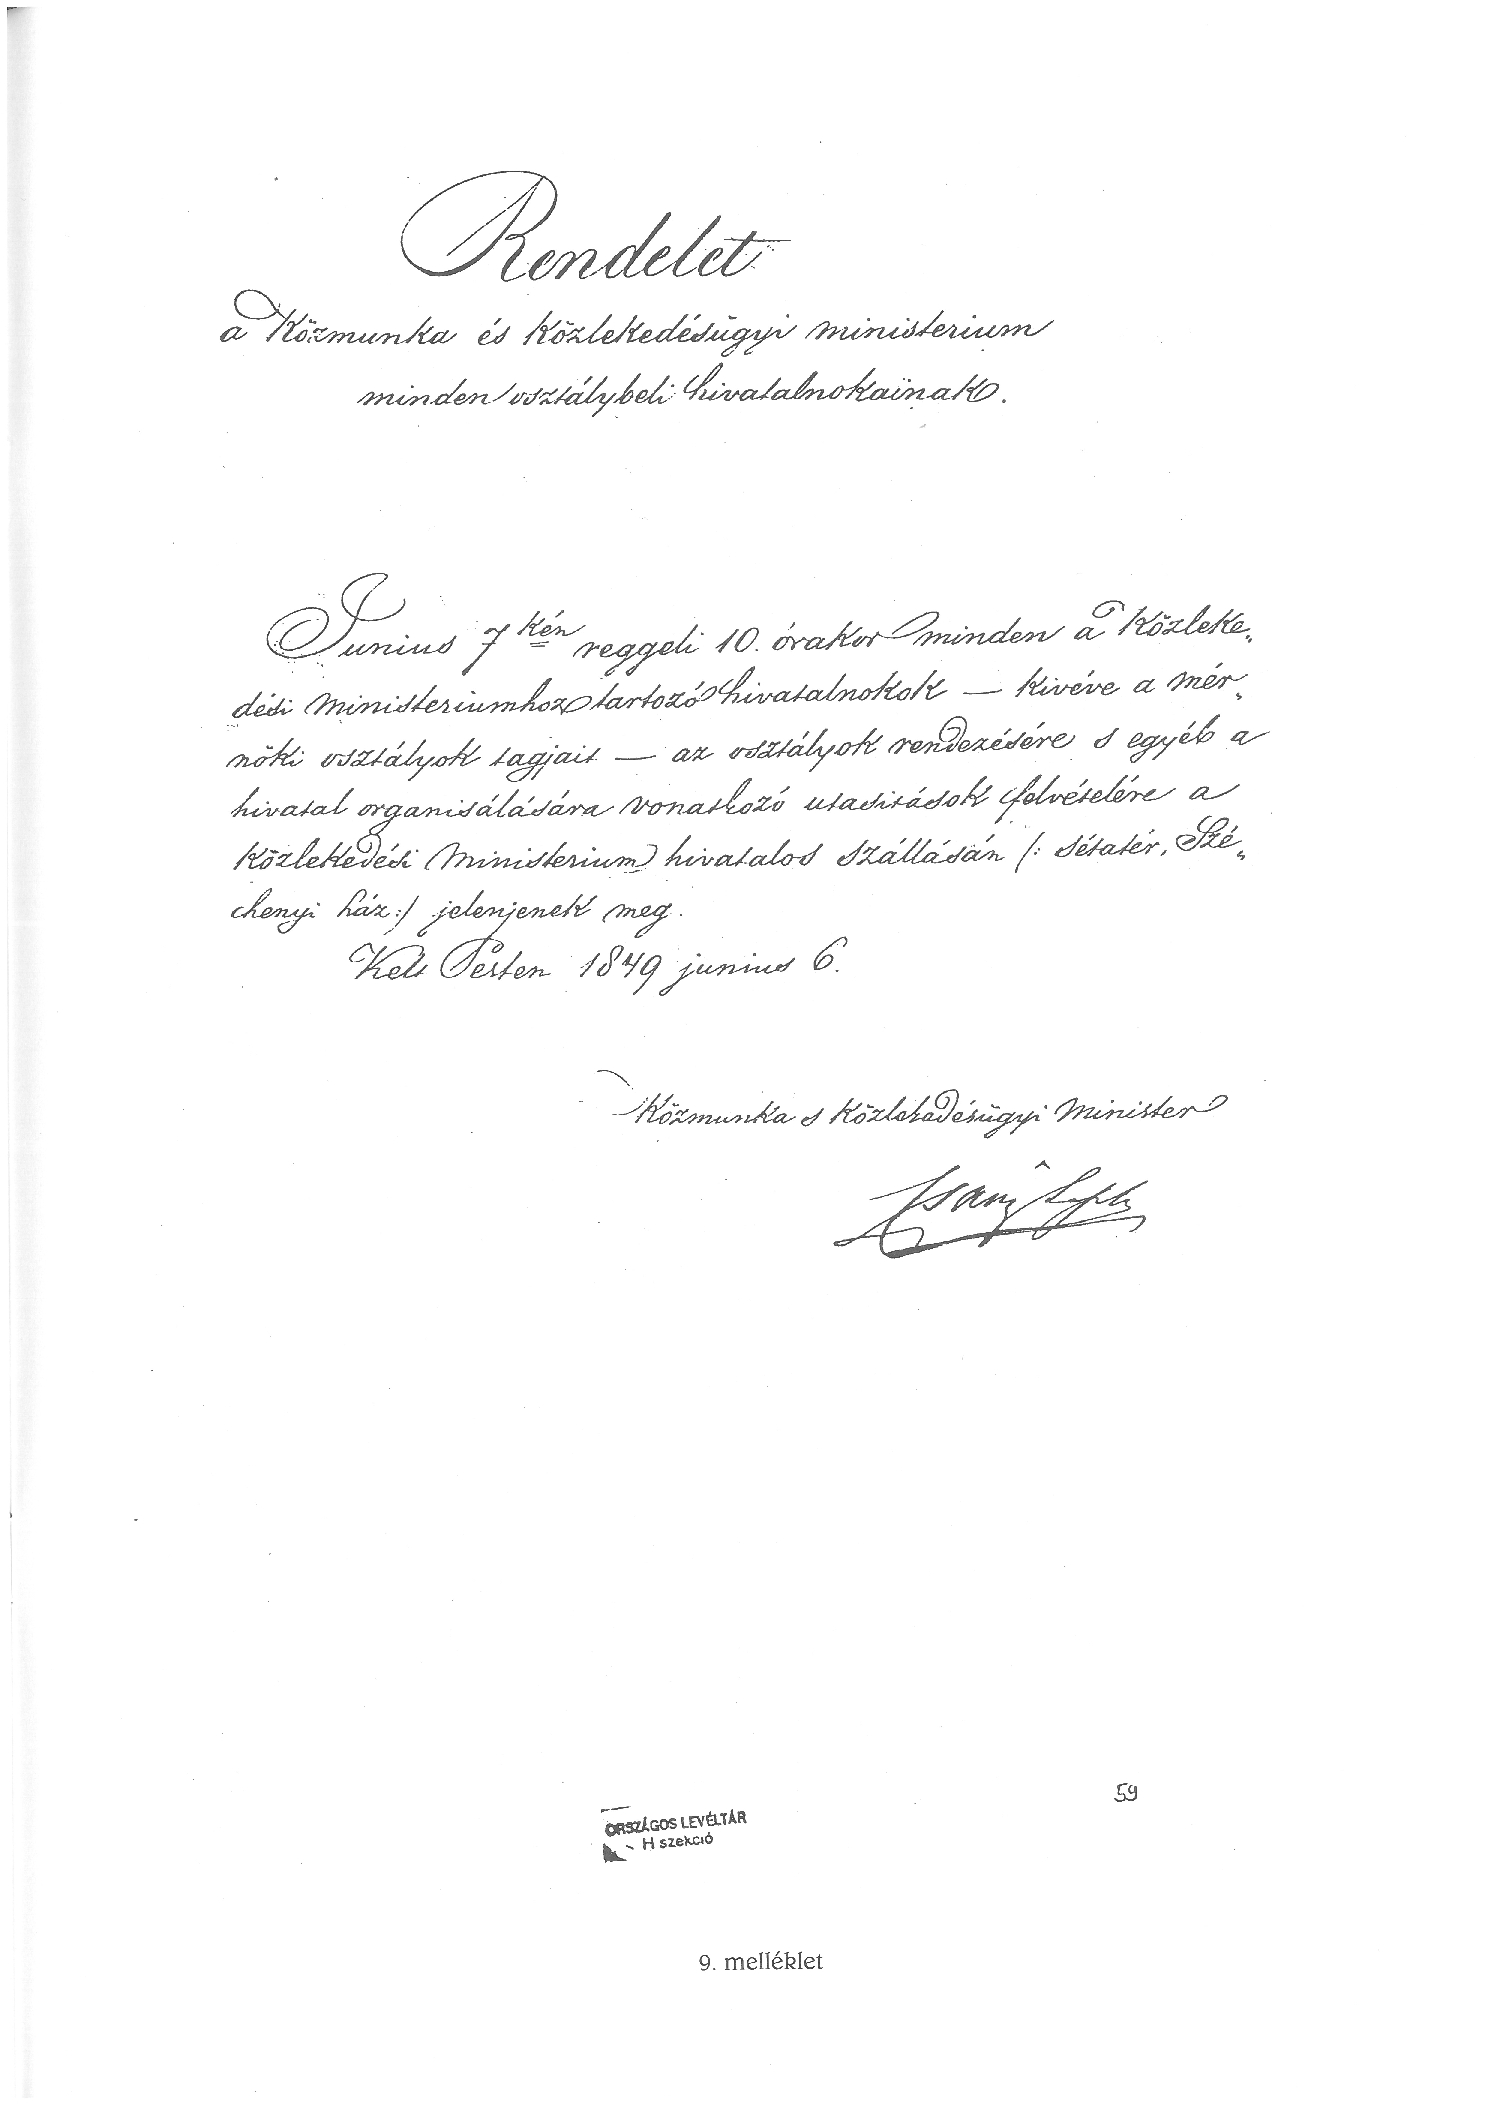 Rendelet
a Közmunka és Közlekedésügyi ministerium
minden osztálybeli hivatalnokainak.
Junius 7 kén reggeli 10. órakor minden a Közleke„
dési Ministeriumhoz tartozó hivatalnokok — kivéve a mér„
nöki osztályok tagjait — az osztályok rendezésére s egyéb a
hivatal organisálására vonatkozó utasitások felvételére a
Közlekedési Ministerium hivatalos szállásán /: sétatér, Szé„
chenyi ház :/ jelenjenek meg.
Kelt Pesten 1849 junius 6.
Közmunka s Közlekedésügyi Minister
Csány
59
ORSZÁGOS LEVÉLTÁR
H szekció
9. melléklet